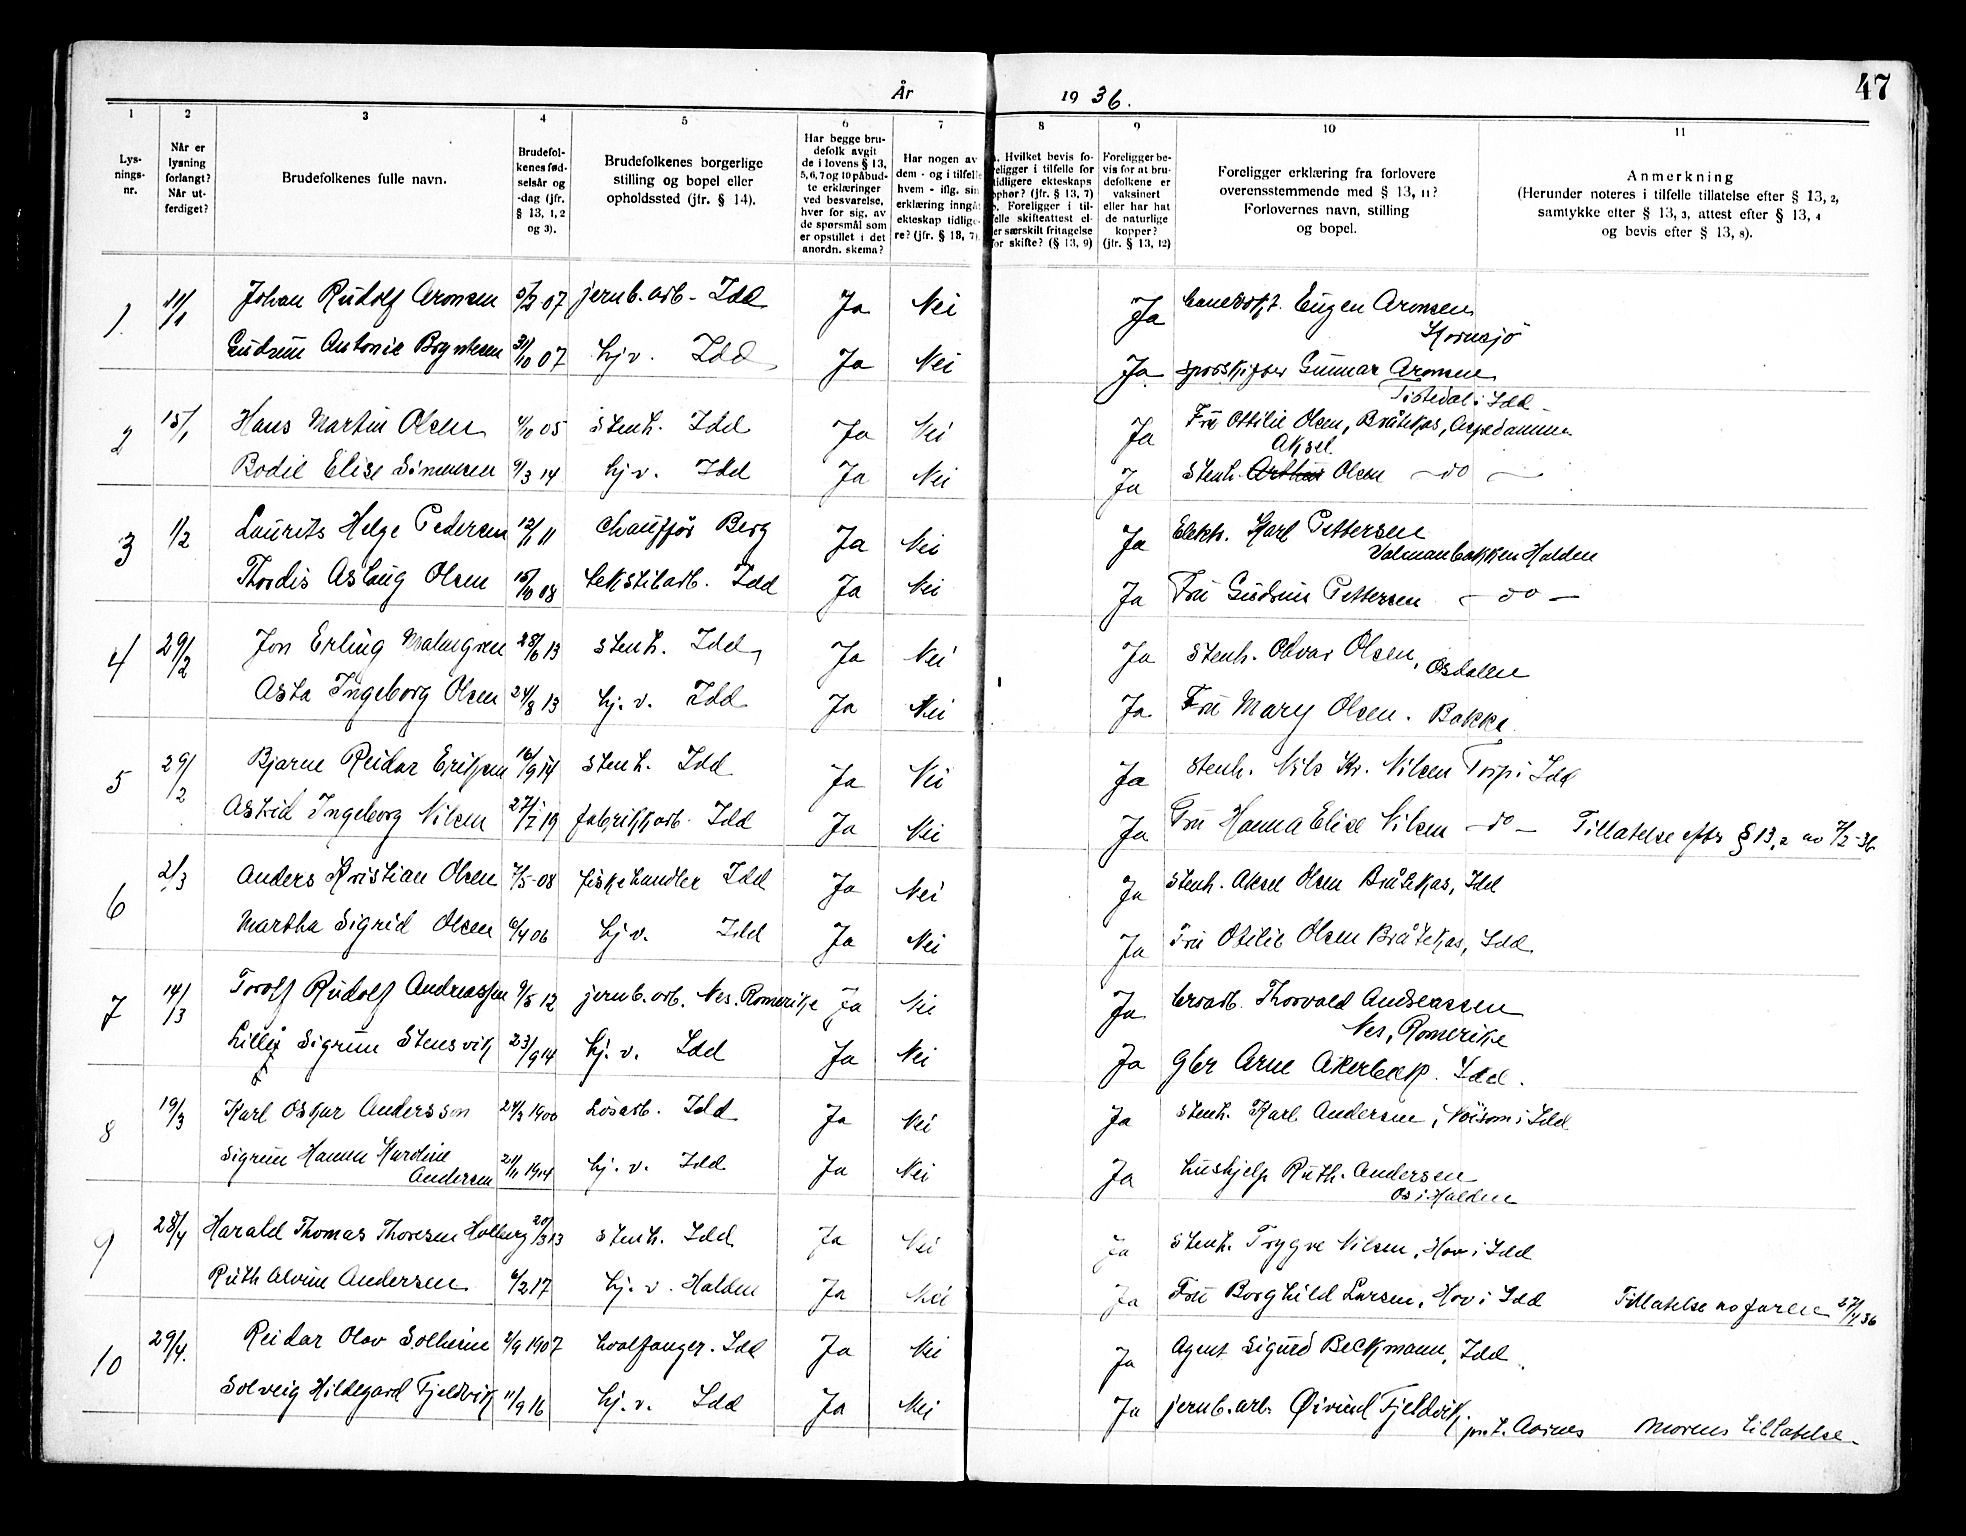 47
År 1936.
1 2 3 4 5 6 7 8 9 10 11
Lysningsnr.
Når er lysning forlangt? Når utferdiget?
Brudefolkenes fulle navn.
Brudefolkenes fødselsår og -dag (jfr. § 13, 1, 2 og 3).
Brudefolkenes borgerlige stilling og bopel eller opholdssted (jfr. § 14).
Har begge brudefolk avgit de i lovens § 13, 5, 6, 7 og 10 påbudte erklæringer ved besvarelse, hver for sig, av de spørsmål som er opstillet i det anordn. skema?
Har nogen av dem - og i tilfelle hvem - iflg. sin erklæring inngåt ekteskap tidligere? (jfr. § 13, 7).
a. Hvilket bevis foreligger i tilfelle for tidligere ekteskaps ophør? (jfr. § 13, 7) b. Foreligger i tilfelle skifteattest eller særskilt fritagelse for skifte? (§ 13, 9)
Foreligger bevis for at brudefolkene er vaksinert eller har hat de naturlige kopper? (jfr. § 13, 12)
Foreligger erklæring fra forlovere overensstemmende med § 13, 11? Forlovernes navn, stilling og bopel.
Anmerkning
(Herunder noteres i tilfelle tillatelse efter § 13, 2, samtykke efter § 13, 3, attest efter § 13, 4 og bevis efter § 13, 8).
1 11/1 Johan Rudolf Aronsen 5/2 07 jernb.arb. Idd Ja Nei Ja Eugen Aronsen
Kornsjø
Gudrun Antonie Bryntesen 31/10 07 hj v. Idd Ja Nei Ja sporskifter Gunnar Aronsen
Tistedal i Idd
2 15/1 Hans Martin Olsen 4/10 05 Stenh. Idd Ja Nei Ja Fru Ottilie Olsen, Bråtekas, Aspedammen
Aksel
Bodil Elise Simensen 9/3 14 hj v. Idd Ja Nei Ja Stenh. Arthur Olsen - do -
3 1/2 Laurits Helge Pedersen 12/11 11 Chauffør Berg Ja Nei Ja Karl Pettersen
Halden
Thordis Aslaug Olsen 15/10 08 tekstilarb. Idd Ja Nei Ja Fru Gudrun Pettersen - do -
4 29/2 Jon Erling Malmgren 28/6 13 Stenh. Idd Ja Nei Ja Stenh. Olvar Olsen, Osdalen
Asta Ingeborg Olsen 24/8 13 hj. v. Idd Ja Nei Ja Fru Mary Olsen. Bakke
5 29/2 Bjarne Reidar Eriksen 16/9 14 Stenh. Idd Ja Nei Ja Stenh. Nils Kr. Nilsen Torp i Idd
Astrid Ingeborg Nilsen 27/7 19 fabrikkarb. Idd Ja Nei Ja Fru Hanna Elise Nilsen - do - Tillatelse efter § 13,2 av 7/2-36
6 2/3 Anders Kristian Olsen 7/5-08 fiskehandler Idd Ja Nei Ja Stenh. Aksel Olsen Bråtekas, Idd
Martha Sigrid Olsen 6/4 06 hj v. Idd Ja Nei Ja Fru Otilie Olsen Bråtekas, Idd
7 14/3 Torolf Rudolf Andreassen 9/5 12 jernb.arb. Nes. Romerike Ja Nei Ja Thorvald Andreassen
Nes, Romerike
Lilly Sigrun Stensvik 23/9 14 hj. v. Idd Ja Nei Ja gbr Arne Akerbæk. Idd.
8 19/3 Karl Oskar Andersson 24/3 1900 Løsarb. Idd Ja Nei Ja Stenh. Karl Andersen, i Idd
Sigrun Hanna Andersen 1914 hj. v. Idd Ja Nei Ja hushjelp Ruth Andersen
Os i Halden
9 28/4 Harald Thomas Thoresen Holberg 20/3 13 Stenh. Idd Ja Nei Ja Stenh. Trygve Nilsen, Hov i Idd
Ruth Alvine Andersen 6/2 17 hj. v. Halden Ja Nei Ja Fru Borghild Larsen, Hov i Idd Tillatelse av faren 27/4 36
10 29/4. Reidar Olav Solheim 2/9 1907 hvalfanger. Idd Ja Nei Ja Agent Sigurd Beckmann, Idd.
Solveig Hildegard Fjeldvik 11/9 16 hj. v. Idd Ja Nei Ja jernb.arb. Øivind Fjeldvik, Morens tillatelse